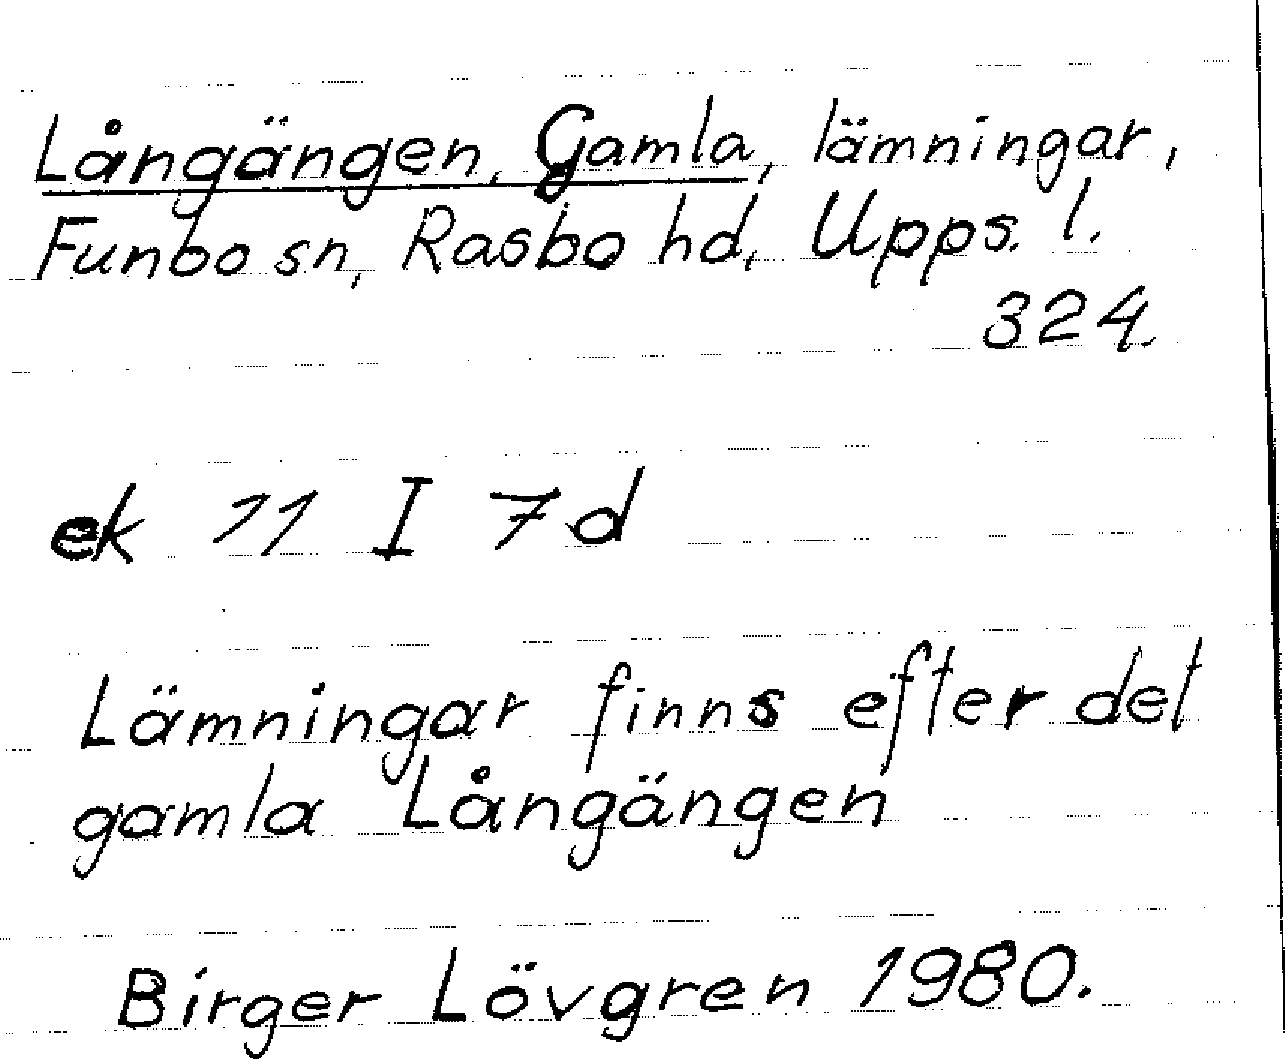 Långängen, Gamla, lämningar,
Funbo sn, Rasbo hd, Upps. l.
324.
ek 11 I 7d
Lämningar finns efter det
gamla Långängen
Birger Lövgren 1980.